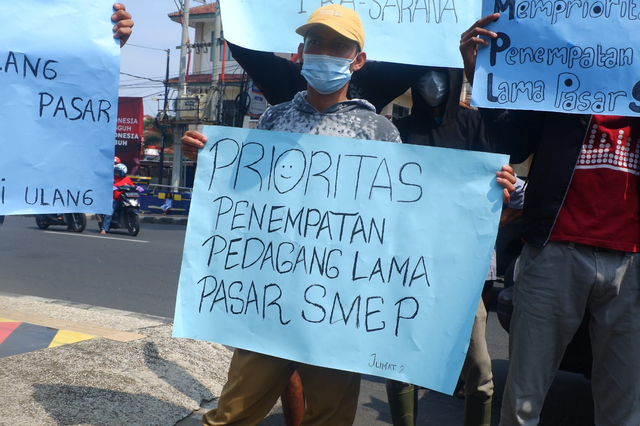 ULANG
PASAR
ULANG
A-SARANA
Memprioritas
Penempatan
Lama Pasar S
PRIORITAS
PENEMPATAN
PEDAGANG LAMA
PASAR SMEP